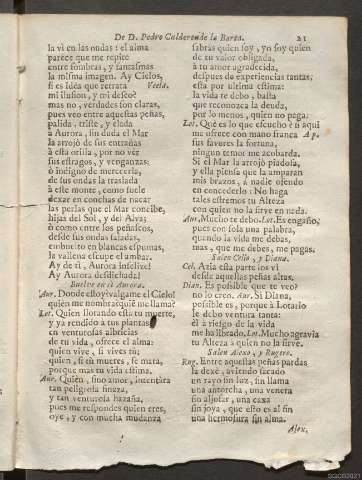 De D. Pedro Calderon de la Barca. 21
la vi en las ondas: el alma
parece que me repite
entre sombras, y fantasmas
la misma imagen. Ay Cielos,
si es idéa que retrata Veela.
mi ilusion, y mi deseo?
mas no, verdades son claras,
pues veo entre aquestas peñas,
palida, triste, y elada
a Aurora, sin duda el Mar
la arrojò de sus entrañas
à esta orilla, por no ver
sus estragos, y venganzas:
ò indigno de mercerla,
de sus ondas la traslada
à este monte, como suele
dexar en conchas de nacar
las perlas que el Mar concibe,
hijas del Sol, y del Alva;
ò como entre los peñascos,
desde sus ondas saladas,
embuelto en blancas espumas,
la vallena escupe el ambar.
Ay de ti, Aurora infelize!
Ay Aurora desdichada!
Buelve en sì Aurora.
Aur. Donde estoy? valgame el Cielo!
quien me nombra? què me llama?
Lot. Quien llorando està tu muerte,
y ya rendido a tus plantas
en venturosas albricias
de tu vida, ofrece el alma:
quien vive, si vives tù;
quien, si tu mueres, se mata,
porque mas tu vida estima.
Aur. Quien, sino amor, intentàra
tan peligrosa fineza,
y tan venturosa hazaña,
pues me respondes quien eres,
oye, y con mucha mudanza
sabràs quien soy, yo soy quien
de tu valor obligada,
à tu amor agradecida,
despues de experiencias tantas,
esta por ultima estima:
la vida te debo, basta
que reconozca la deuda,
por lo menos, quien no paga.
Lot. Què es lo que escucho? si aqui
me ofrece con mano franca Ap.
sus favores la fortuna,
ningun temor me acobarda.
Si el Mar la arrojò piadosa,
y ella piensa que la amparan
mis brazos, à nadie ofendo
en concederlo: No haga
tales estremos tu Alteza
con quien no la sirve en nada.
Aur. Mucho te debo. Lot. Es engaño,
pues con sola una palabra,
quando la vida me debas,
mas, que me debes, me pagas.
Salen Celio, y Diana.
Cel. Azia esta parte los vi
desde aquellas peñas altas.
Dian. Es possible que te veo?
no lo creo. Aur. Si Diana,
possible es, porque à Lotario
le debo ventura tanta:
èl à riesgo de la vida
me ha librado. Lot. Mucho agravia
tu Alteza à quien no la sirve.
Salen Alexo, y Rugero.
Rug. Entre aquestas peñas pardas
la dexè, aviendo sacado
un rayo sin luz, sin llama
una antorcha, una venera
sin aljofar, una caxa
sin joya, que esto es al fin
una hermosura sin alma.
Alex.
SGCB2021